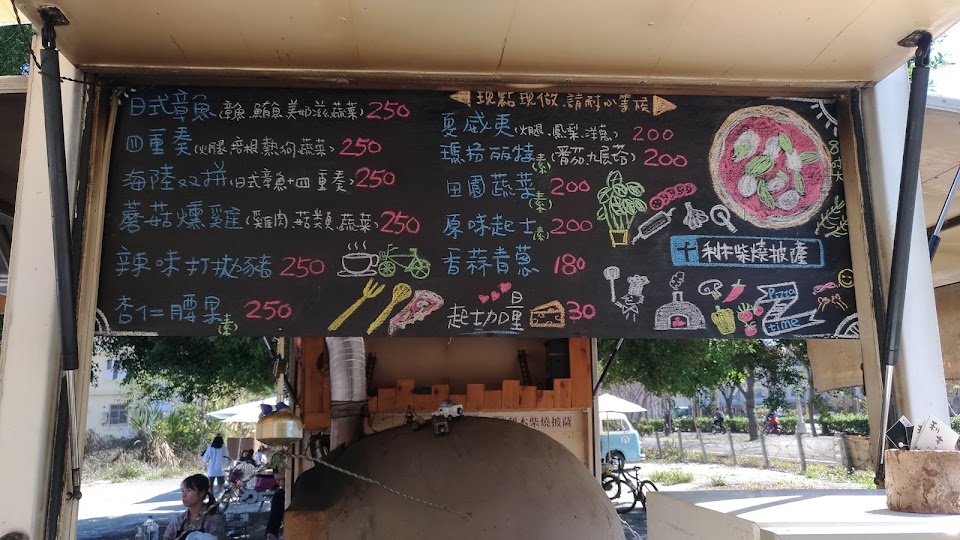 現點現做.請耐心等候
日式章魚(章魚.鮪魚.美奶滋.蔬菜)250
四重奏(火腿.培根.熱狗.蔬菜)250
海陸双拼(日式章魚+四重奏)250
蘑菇燻雞(雞肉.菇類.蔬菜)250
辣味打拋豬 250
杏仁腰果(素)250
夏威夷(火腿.鳳梨.洋蔥)200
瑪格丽特(素)(蕃茄.九層塔)200
田園蔬菜(素)200
原味起士(素)200
香蒜青蔥 180
起士加量 30
利木柴燒披薩
Pizza
time
利木柴燒披薩